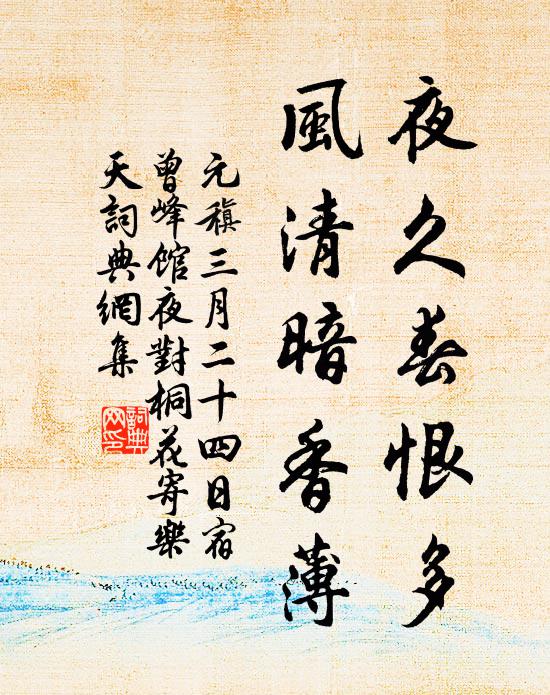 夜久春恨多
風清暗香薄
元稹三月二十四日宿
曾峰館夜對桐花寄樂
天詞典網集
詞典
网印